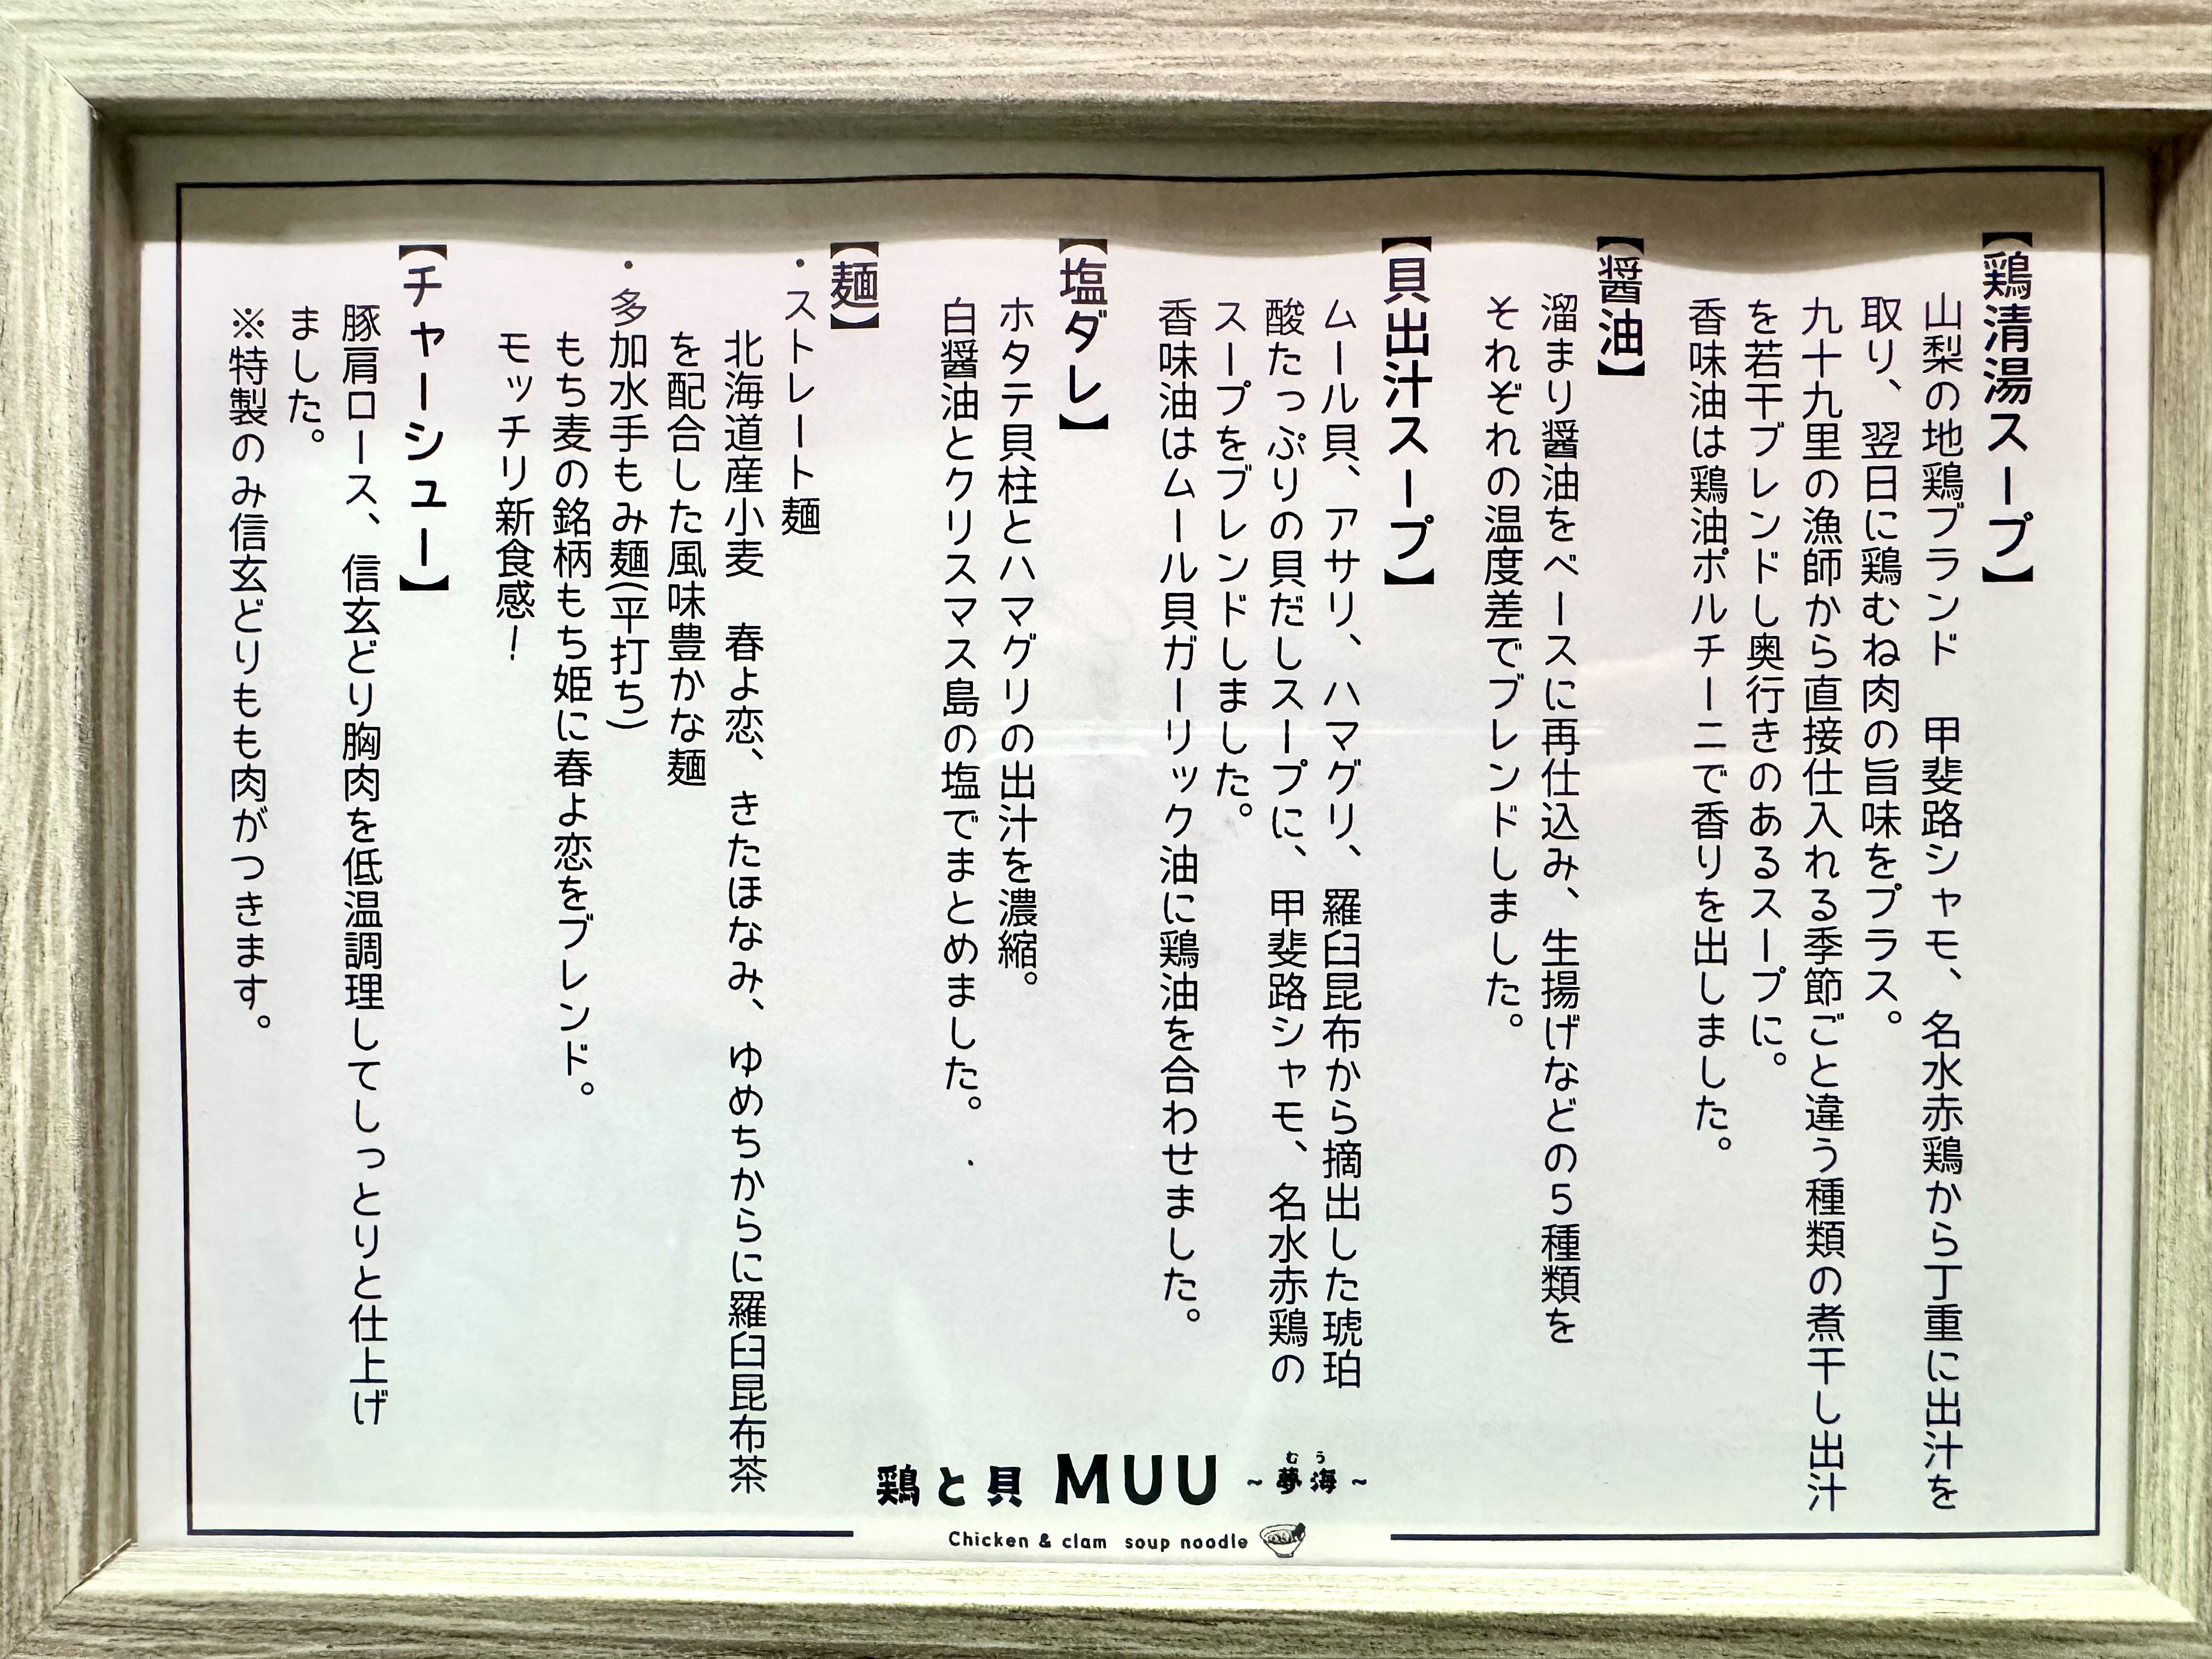 【鶏清湯スープ】
山梨の地鶏ブランド　甲斐路シャモ、名水赤鶏から丁重に出汁を
取り、翌日に鶏むね肉の旨味をプラス。
九十九里の漁師から直接仕入れる季節ごと違う種類の煮干し出汁
を若干ブレンドし奥行きのあるスープに。
香味油は鶏油ポルチーニで香りを出しました。
【醤油】
溜まり醤油をベースに再仕込み、生揚げなどの5種類を
それぞれの温度差でブレンドしました。
【貝出汁スープ】
ムール貝、アサリ、ハマグリ、羅臼昆布から摘出した琥珀
酸たっぷりの貝だしスープに、甲斐路シャモ、名水赤鶏の
スープをブレンドしました。
香味油はムール貝ガーリック油に鶏油を合わせました。
【塩ダレ】
ホタテ貝柱とハマグリの出汁を濃縮。
白醤油とクリスマス島の塩でまとめました。
【麺】
・ストレート麺
北海道産小麦　春よ恋、きたほなみ、ゆめちからに羅臼昆布茶
を配合した風味豊かな麺
・多加水手もみ麺(平打ち)
もち麦の銘柄もち姫に春よ恋をブレンド。
モッチリ新食感!
【チャーシュー】
豚肩ロース、信玄どり胸肉を低温調理してしっとりと仕上げ
ました。
※特製のみ信玄どりもも肉がつきます。
鶏と貝 MUU ~夢海~
むう
Chicken & clam soup noodle